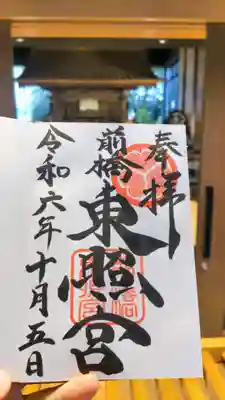 奉拝
前橋
東照宮
令和六年十月五日